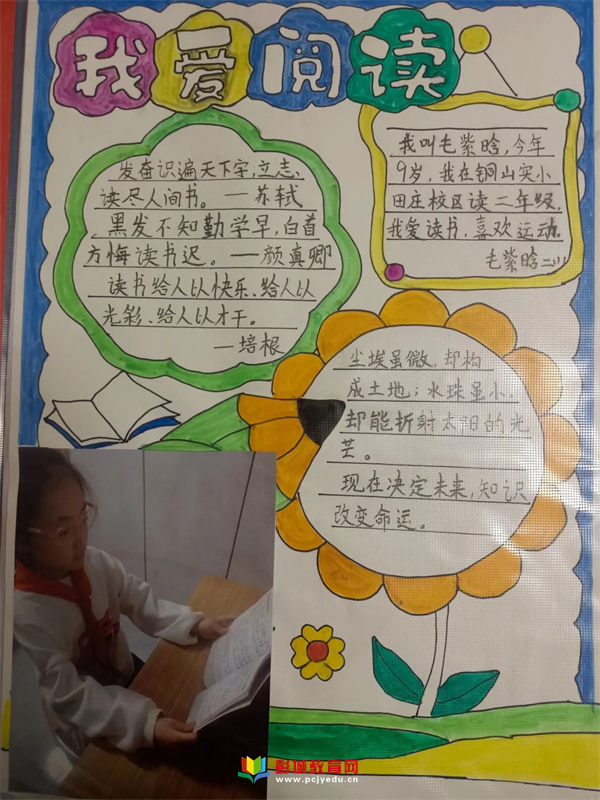 我爱阅读
发奋识遍天下字,立志
读尽人间书。—苏轼
黑发不知勤学早,白首
方悔读书迟。—颜真卿
读书给人以快乐、给人以
光彩、给人以才干。
—培根
我叫毛紫晗,今年
9岁,我在铜山实小
田庄校区读二年级,
我爱读书,喜欢运动。
毛紫晗二川
尘埃虽微,却构
成土地;水珠虽小,
却能折射太阳的光
芒。
现在决定未来,知识
改变命运。
彭城教育网
www.pcjyedu.cn